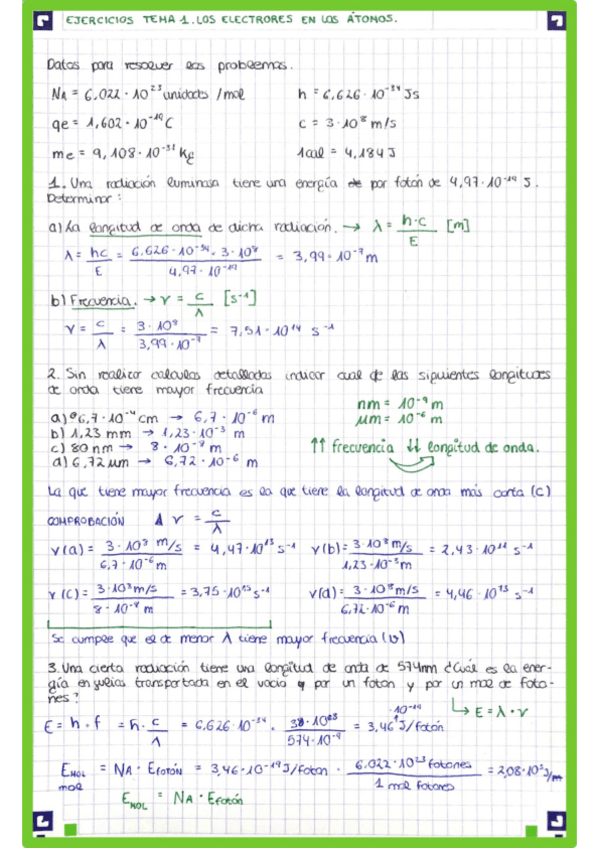 EJERCICIOS TEMA 1. LOS ELECTRORES EN LOS ÁTOMOS.
Datos para resolver los problemas.
NA = 6.022 · 10²³ unidades /mol h = 6,626 · 10⁻³⁴ Js
qe = 1,602 · 10⁻¹⁹ C c = 3 · 10⁸ m/s
me = 9,108 · 10⁻³¹ Kg 1cal = 4,184 J
1. Una radiación luminosa tiene una energía de por fotón de 4,97 · 10⁻¹⁹ J.
Determinar:
a) La longitud de onda de dicha radiación. → λ = h·c / E [m]
λ = hc / E = 6.626 · 10⁻³⁴ · 3 · 10⁸ / 4,97 · 10⁻¹⁹ = 3,99 · 10⁻⁷ m
b) Frecuencia. → ν = c / λ [s⁻¹]
ν = c / λ = 3 · 10⁸ / 3,99 · 10⁻⁷ = 7,51 · 10¹⁴ s⁻¹
2. Sin realizar calculos detallados indicar cual de las siguientes longitudes
de onda tiene mayor frecuencia
nm = 10⁻⁹ m
a) 6,7 · 10⁻⁴ cm → 6,7 · 10⁻⁶ m µm = 10⁻⁶ m
b) 1,23 mm → 1,23 · 10⁻³ m
c) 80 nm → 8 · 10⁻⁸ m ↑↑ frecuencia ↓↓ longitud de onda.
d) 6,72 µm → 6,72 · 10⁻⁶ m
La que tiene mayor frecuencia es la que tiene la longitud de onda más corta (c)
COMPROBACIÓN ν = c / λ
ν(a) = 3 · 10⁸ m/s / 6,7 · 10⁻⁶ m = 4,47 · 10¹³ s⁻¹ ν(b) = 3 · 10⁸ m/s / 1,23 · 10⁻³ m = 2,43 · 10¹¹ s⁻¹
ν(c) = 3 · 10⁸ m/s / 8 · 10⁻⁸ m = 3,75 · 10¹⁵ s⁻¹ ν(d) = 3 · 10⁸ m/s / 6,72 · 10⁻⁶ m = 4,46 · 10¹³ s⁻¹
Se cumple que el de menor λ tiene mayor frecuencia (ν)
3. Una cierta radiación tiene una longitud de onda de 574nm ¿Cuál es la ener-
gía en julios transportada en el vacío por un foton y por un mol de foto-
nes? ↳ E = λ · ν
E = h · f = h · c / λ = 6.626 · 10⁻³⁴ · 3 · 10⁸ / 574 · 10⁻⁹ = 3,46 · 10⁻¹⁹ J/fotón
EMOL = NA · Efotón = 3,46 · 10⁻¹⁹ J/foton · 6.022 · 10²³ fotones / 1 mol fotones = 2,08 · 10⁵ J/m
mol
EMOL = NA · Efotón